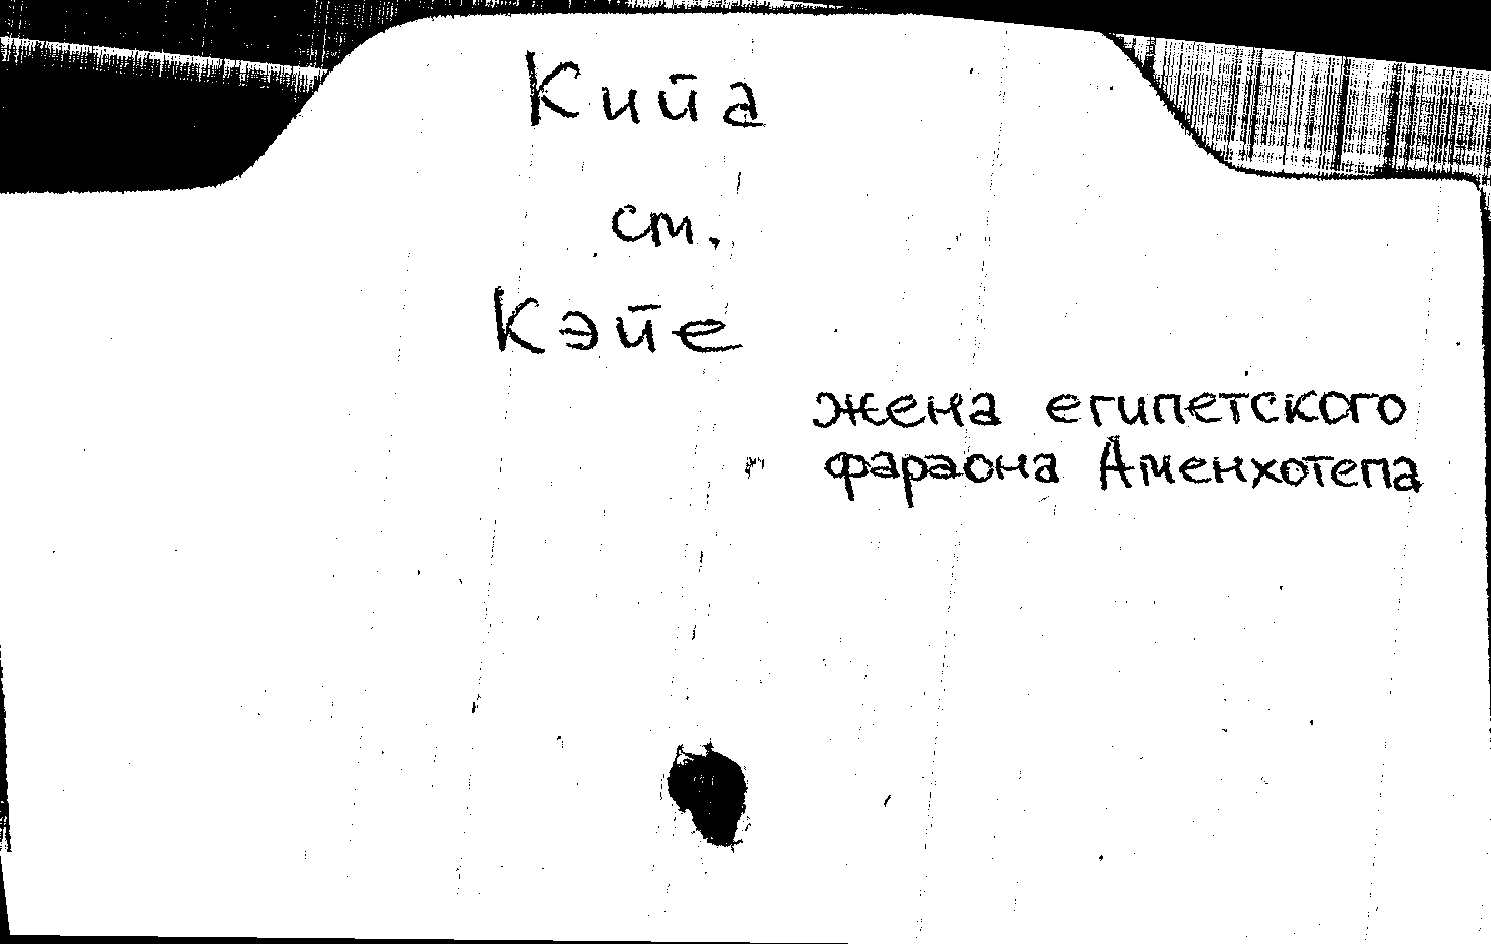 Кийа
см.
Кэйе
жена египетского
фараона Аменхотепа